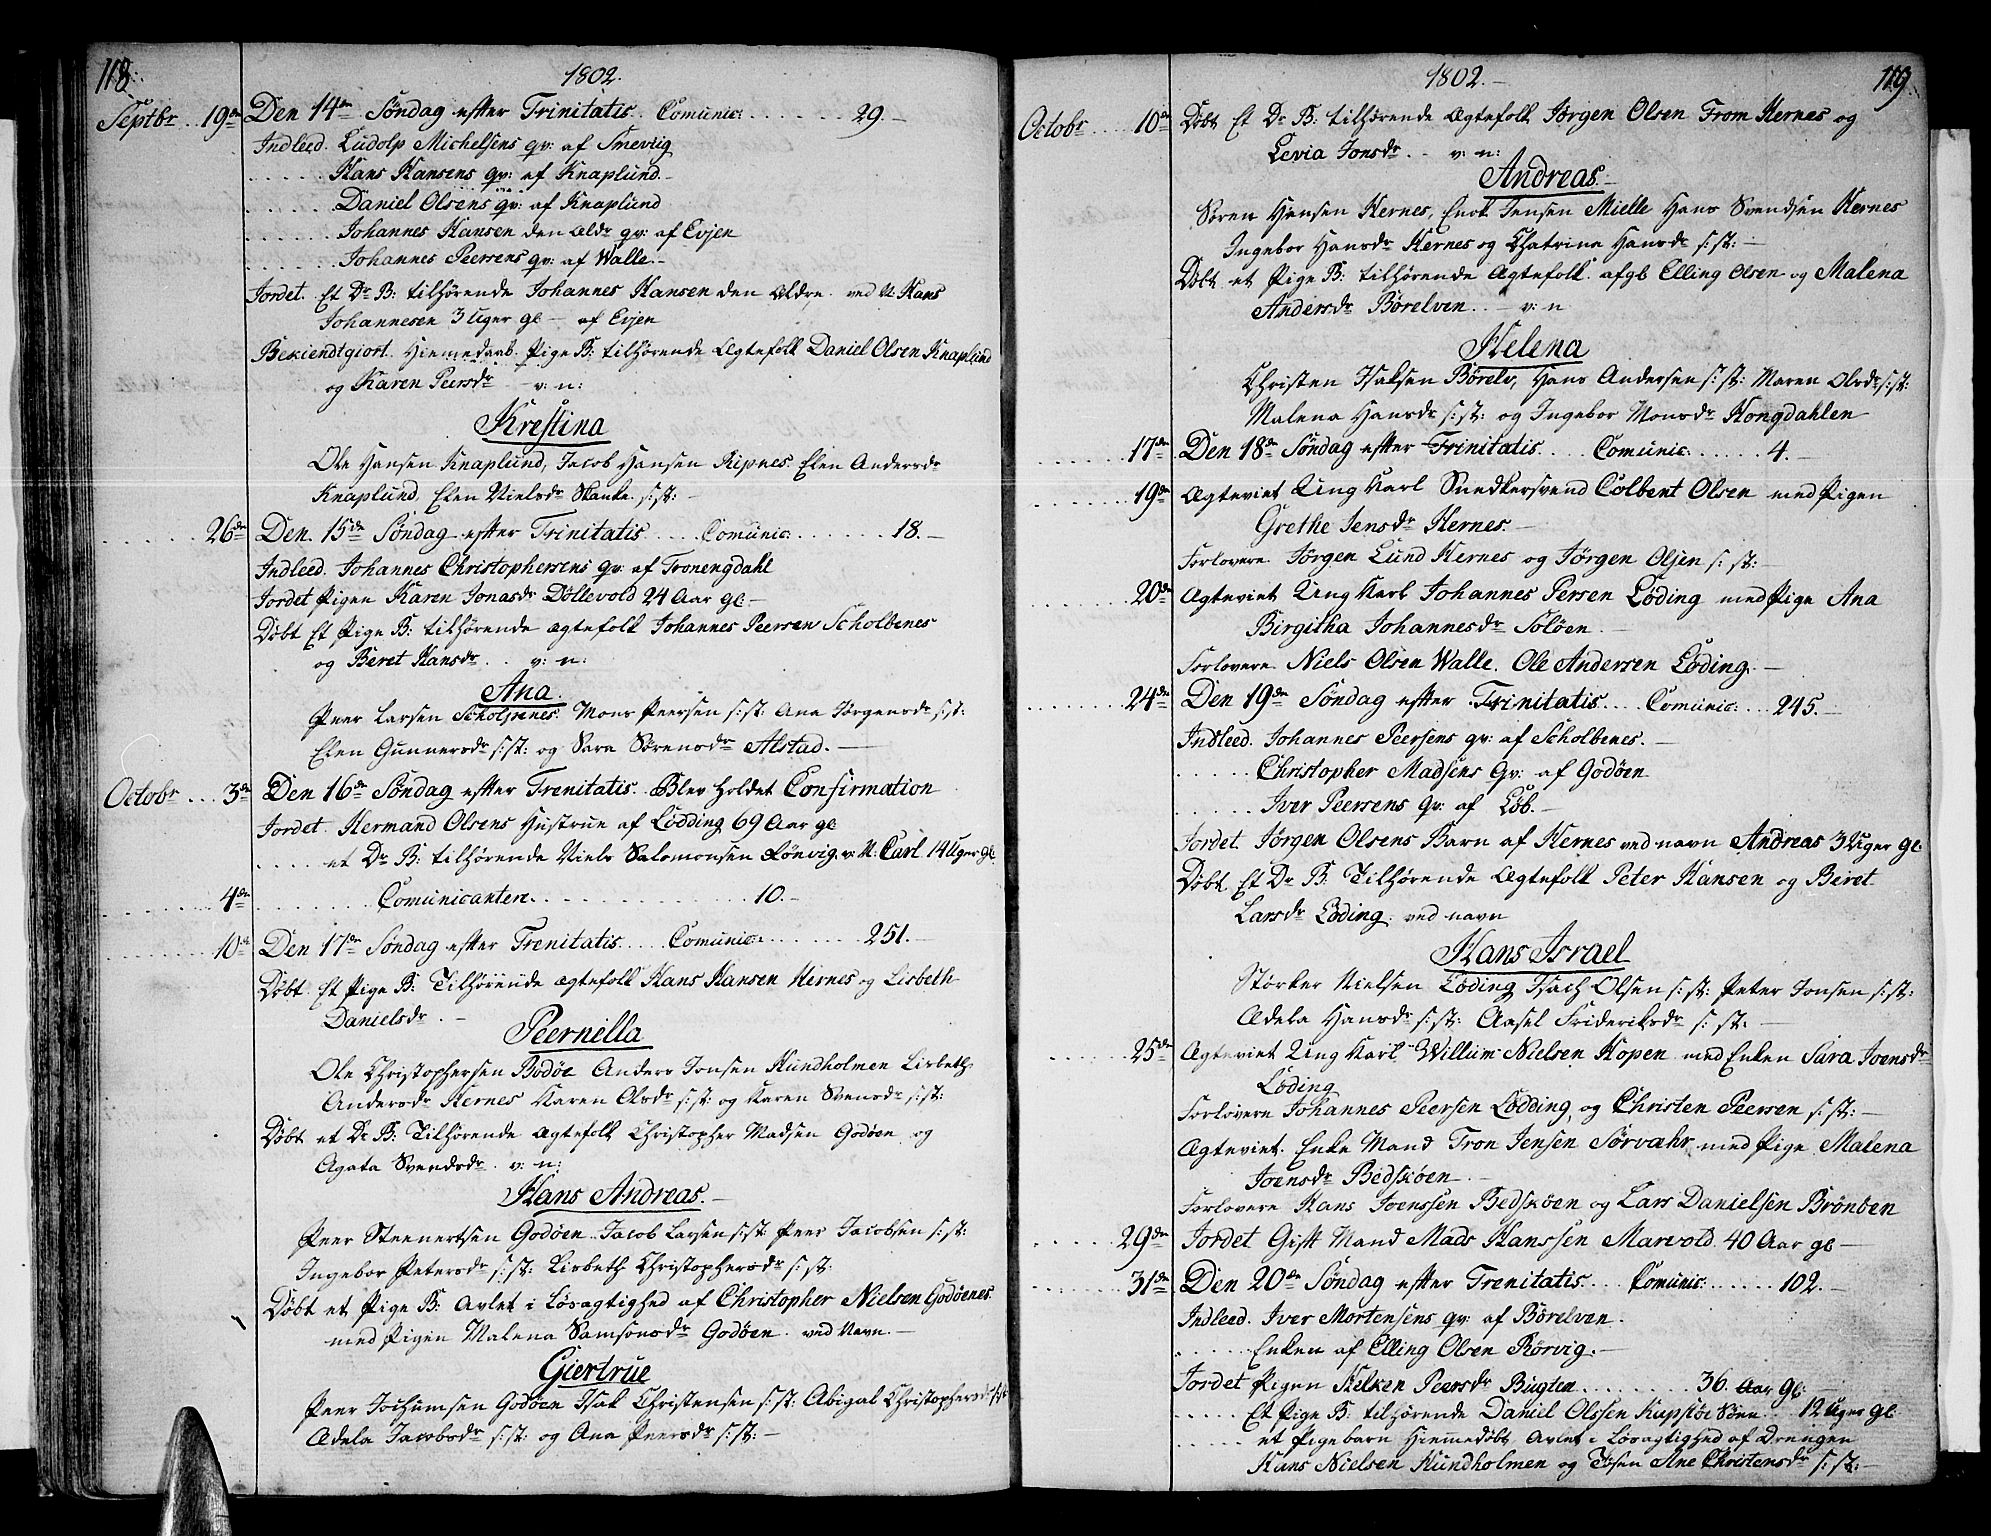 118.
1802.
Septbr 19de Den 14de Søndag efter Trinitatis. Comunic: 29.
Indleed. Ludolp Michelsens qv: af Smeviig
Hans Hansens qv: af Knaplund.
Daniel Olsens qv: af Knaplund
Johannes Hansen den Aldr qv: af Evjen
Johannes Peersens qv: af Walle.
Jordet. Et Dr B: tilhørende Johannes Hansen den Aldre ved N: Hans
Johannesen 3 Uger gl — af Evjen
Bekiendtgiort. Hiemedaab. Pige B: tilhørende Ægtefolk Daniel Olsen Knaplund
og Karen Peersdr v: n:
Krestina
Ole Hansen Knaplund, Jacob Hansen Ripnes. Elen Andersdr
Knaplund, Elen Nielsdr Skanke. s: st:
26de Den 15de Søndag efter Trinitatis Comunic: 18.
Indleed. Johannes Christophersens qv: af Tronengdahl
Jordet Pigen Karen Jonasdr Døllevold 24 Aar gl
Døbt Et Pige B: tilhørende ægtefolk Johannes Peersen Scholbenes
og Beret Hansdr v: n:
Ana.
Peer Larsen Scholpenes. Mons Peersen s: st: Ana Jørgensdr s: st:
Elen Gunnersdr s: st: og Sara Sørensdr Alstad.
Octobr 3de Den 16de Søndag efter Trenitatis. Blev holdet Confirmation
Jordet. Hermand Olsens Hustrue af Lødding 69 Aar gl
et Dr B: tilhørende Niels Salomonsen Lønvig. v: N: Carl 14 Uger gl
4de Comunicantere. 10.
10de Den 17de Søndag efter Trenitatis Comunic: 251.
Døbt. Et Pige B: Tilhørende ægtefolk Hans Hansen Hernes og Lisbeth
Danielsdr.
Peernilla
Ole Christophersen Bodøe Anders Jonsen Hundholmen Lisbeth
Andersdr Hernes Karen Olsdr s: st: og Karen Svensdr s: st:
Døbt et Dr B: Tilhørende ægtefolk Christopher Madsen Godøen og
Agata Svendsdr. v: n:
Hans Andreas.
Peer Steenertsen Godøen Jacob Larsen s: st: Peer Jacobsen s: st:
Ingebor Petersdr s: st: Lisbeth Christophersdr s: st:
Døbt et Pige B: Avlet i Løsagtighed af Christopher Nielsen Godøenes
med Pigen Malena Samsonsdr Godøen. ved Navn.
Giertrue
Peer Jochumsen Godøen Isak Christensen s: st: Abigal Christophersdr s: st:
Adela Jacobsdr s: st: og Ana Peersdr s: st:
1802.
119.
Octobr 10de Døbt Et Dr B: tilhørende ægtefolk Jørgen Olsen From Hernes og
Levia Jonsdr. v: n:
Andreas.
Søren Hansen Hernes, Enok Jensen Mielle Hans Svendsen Hernes
Ingebor Hansdr Hernes og Chatrina Hansdr s: st:
Døbt et Pige B: tilhørende Ægtefolk afgl Elling Olsen og Malena
Andersdr Børelven. v: n
Helena
Christen Isaksen Børelv, Hans Andersen s: st: Maren Olsdr s: st:
Malena Hansdr s: st: og Ingebor Monsdr Hongdahlen
17de Den 18de Søndag efter Trinitatis. Comunic: 4.
19de Ægteviet Ung Karl Snedkersvend Colbent Olsen med Pigen
Grethe Jensdr Hernes.
Forlovere Jørgen Lund Hernes og Jørgen Olsen s: st:
20de Ægteviet Ung Karl Johannes Persen Løding med Pige Ana
Birgitha Johannesdr Soløen.
Forlovere Niels Olsen Walle. Ole Andersen Løding.
24de Den 19de Søndag efter Trinitatis. Comunic: 245.
Indleed. Johannes Peersens qv: af Scholbenes.
Christopher Madsens Qv: af Godøen
Iver Peersens qv: af Løb.
Jordet. Jørgen Olsens Barn af Hernes ved navn Andreas 3 Uger gl
Døbt. Et Dr B. Tilhørende Ægtefolk Peter Hansen og Beret
Larsdr Løding. ved navn
Hans Israel
Størker Nielsen Løding Isach Olsen s: st: Peter Jonsen s: st:
Ædela Hansdr s: st: Aasel Frideriksdr s: st:
25de Ægteviet Ung Karl Willum Nielsen Hopen med Enken Sara Joensdr
Løding
Forlovere Johannes Peersen Lødding, og Christen Peersen s: st:
Ægteviet. Enke Mand Tron Jensen Sørvahr med Pige Malena
Joensdr Bedskøen
Forlovere Hans Joenssen Bedskøen og Lars Danielsen Brønden
29de Jordet Gift Mand Mads Hanssen Marvold 40 Aar gl
31de Den 20de Søndag efter Trenitatis. Comunic 102.
Indleed. Iver Mortensens qv: af Børelven.
Enken af Elling Olsen Rørvig.
Jordet Pigen Helken Peersdr Bugten 36. Aar gl.
Et Pige B: tilhørende Daniel Olssen Kupskøe 12 Uger gl
et Pigebarn Hiemmedøbt Avlet i Løsagtighed af Drengen
Hans Nielsen Hundholmen og Ane Christensdr s: st: